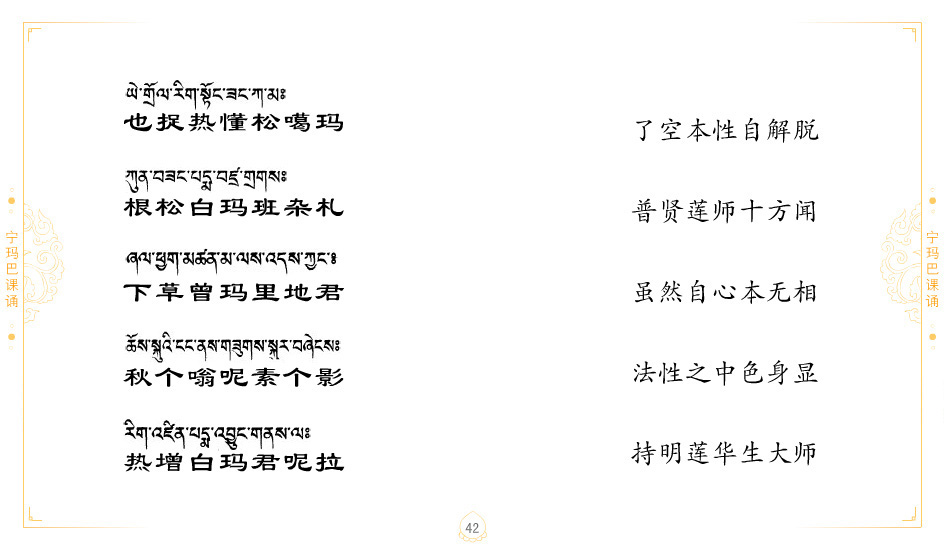 ཡེ་གྲོལ་རིག་སྟོང་ཟང་ཀ་མ༔
也捉热懂松噶玛
了空本性自解脱
ཀུན་བཟང་པདྨ་བཛྲ་གྲགས༔
根松白玛班杂札
普贤莲师十方闻
ཞལ་ཕྱག་མཚན་མ་ལས་འདས་ཀྱང་༔
下草曾玛里地君
虽然自心本无相
ཆོས་སྐུའི་ངང་ནས་གཟུགས་སྐུར་བཞེངས༔
秋个嗡呢素个影
法性之中色身显
རིག་འཛིན་པདྨ་འབྱུང་གནས་ལ༔
热增白玛君呢拉
持明莲华生大师
宁玛巴课诵
宁玛巴课诵
42